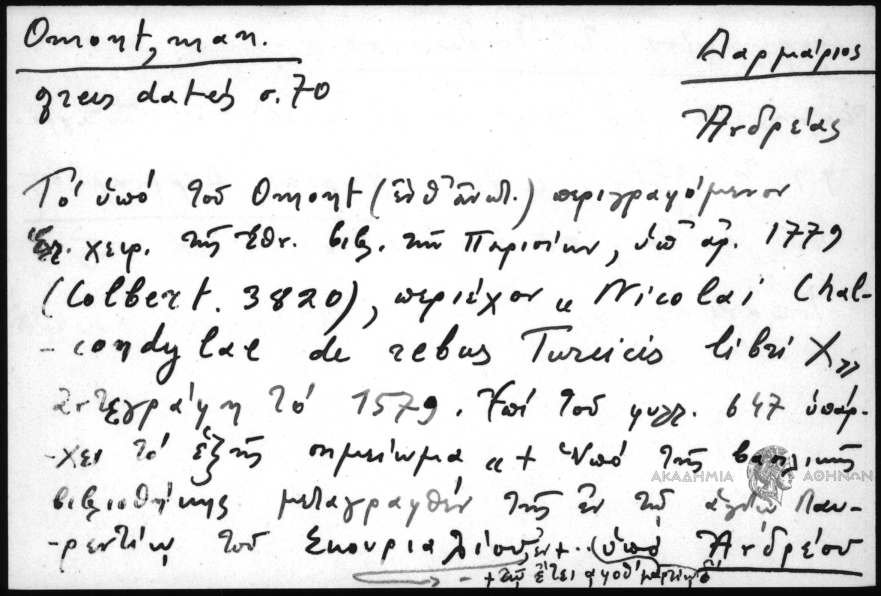 Omont, man.
grecs datés σ. 70
Δαρμάριος
Ἀνδρέας
Τό ὑπό τοῦ Omont (ἔνθ' ἀνωτ.) περιγραφόμενον
ἑλ. χειρ. τῆς Ἐθν. βιβλ. τῶν Παρισίων, ὑπ' ἀρ. 1779
(Colbert. 3820), περιέχον « Nicolai Chal-
- condylae de rebus Turcicis libri X»
ἀντεγράφη τό 1579. Ἐπί τοῦ φυλλ. 647 ὑπάρ-
-χει τό ἑξῆς σημείωμα «+ Ὑπό τῆς βασιλικῆς
ΑΚΑΔΗΜΙΑ ΑΘΗΝΩΝ
βιβλιοθήκης μεταγραφθέν τῆς ἐν τῷ ἁγίῳ Λαυ-
-ρεντίῳ τοῦ Σκουριαλίου, ἐν +.. (ὑπό Ἀνδρέου
- + τῷ ἔτει αφοθ' μαρτίῳ